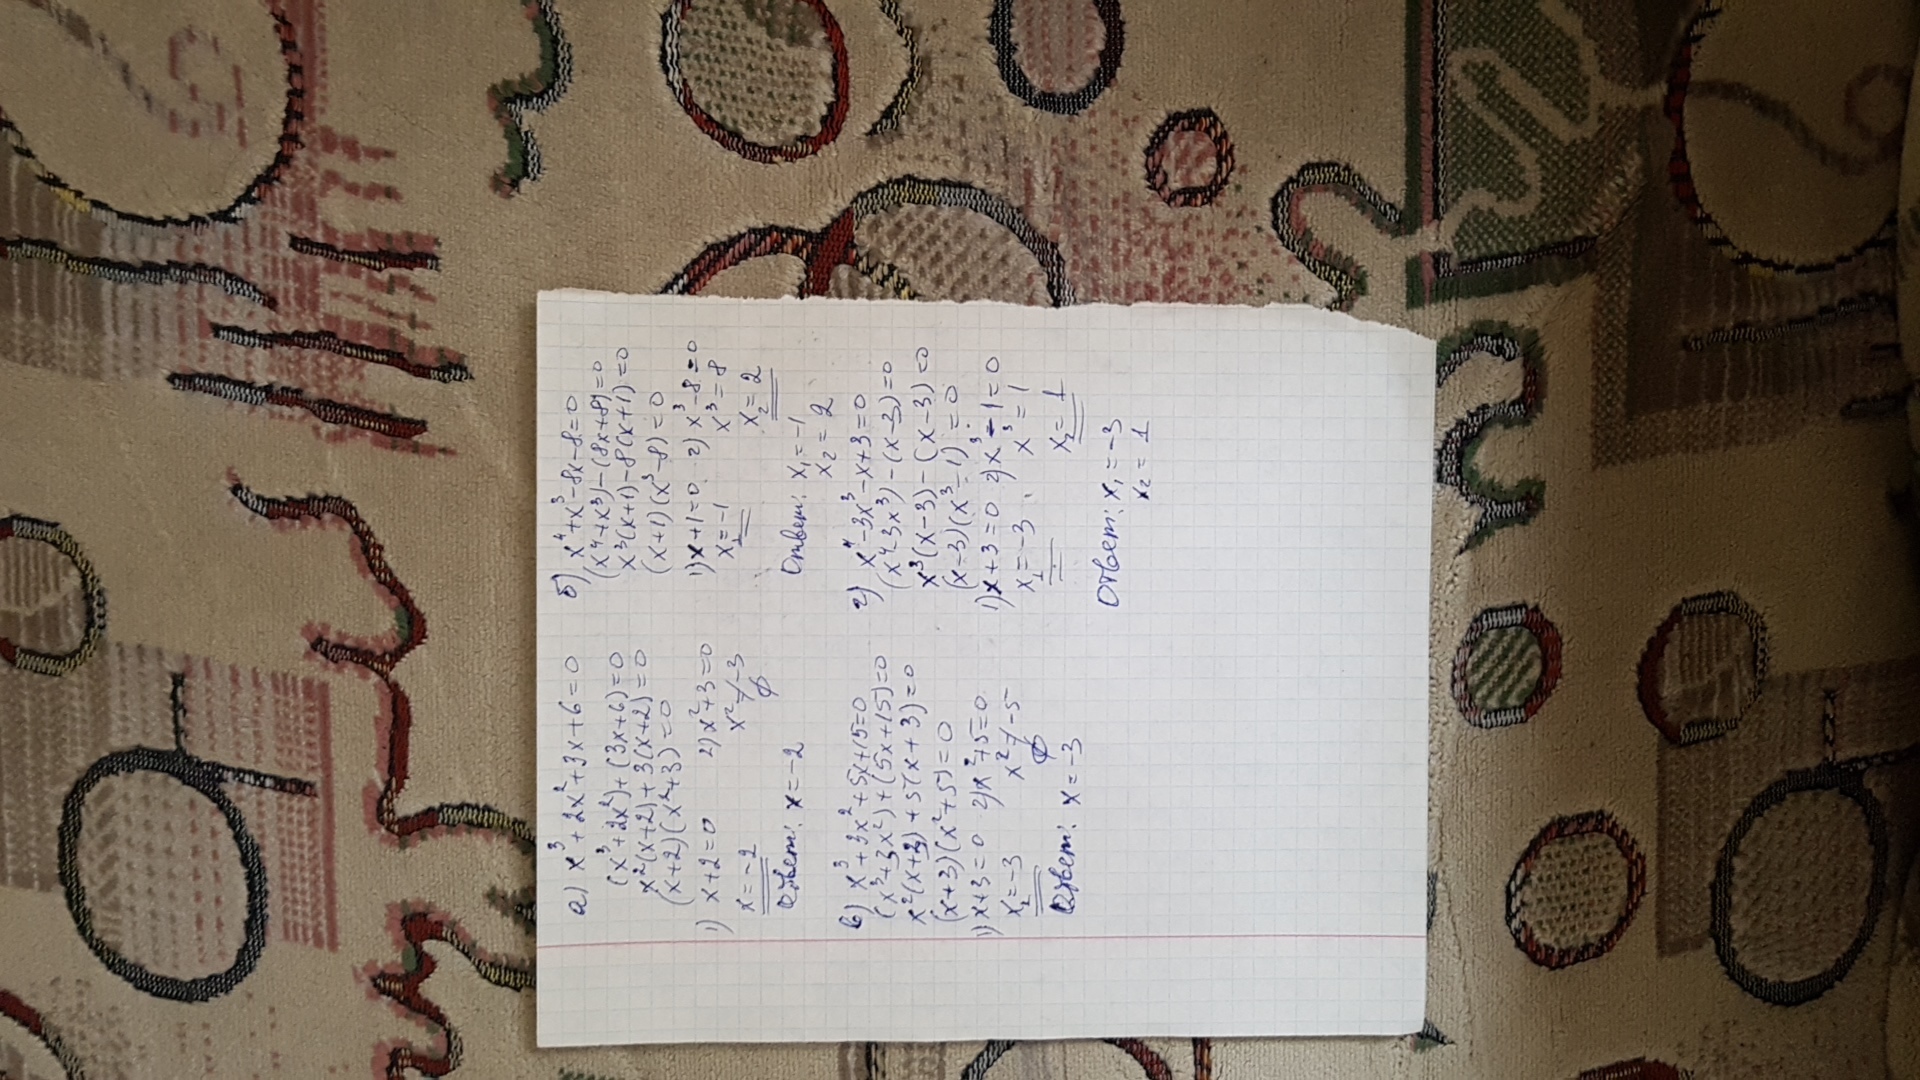 а) x³ + 2x² + 3x + 6 = 0
(x³ + 2x²) + (3x + 6) = 0
x²(x + 2) + 3(x + 2) = 0
(x + 2)(x² + 3) = 0
1) x + 2 = 0 2) x² + 3 = 0
x = -2 x² ≠ -3
∅
Ответ: x = -2
б) x⁴ + x³ - 8x - 8 = 0
(x⁴ + x³) - (8x + 8) = 0
x³(x + 1) - 8(x + 1) = 0
(x + 1)(x³ - 8) = 0
1) x + 1 = 0 2) x³ - 8 = 0
x₁ = -1 x³ = 8
x₂ = 2
Ответ: x₁ = -1
x₂ = 2
в) x³ + 3x² + 5x + 15 = 0
(x³ + 3x²) + (5x + 15) = 0
x²(x + 3) + 5(x + 3) = 0
(x + 3)(x² + 5) = 0
1) x + 3 = 0 2) x² + 5 = 0
x₁ = -3 x² ≠ -5
∅
Ответ: x = -3
г) x⁴ - 3x³ - x + 3 = 0
(x⁴ - 3x³) - (x - 3) = 0
x³(x - 3) - (x - 3) = 0
(x - 3)(x³ - 1) = 0
1) x + 3 = 0 2) x³ - 1 = 0
x₁ = -3 x³ = 1
x₂ = 1
Ответ: x₁ = -3
x₂ = 1